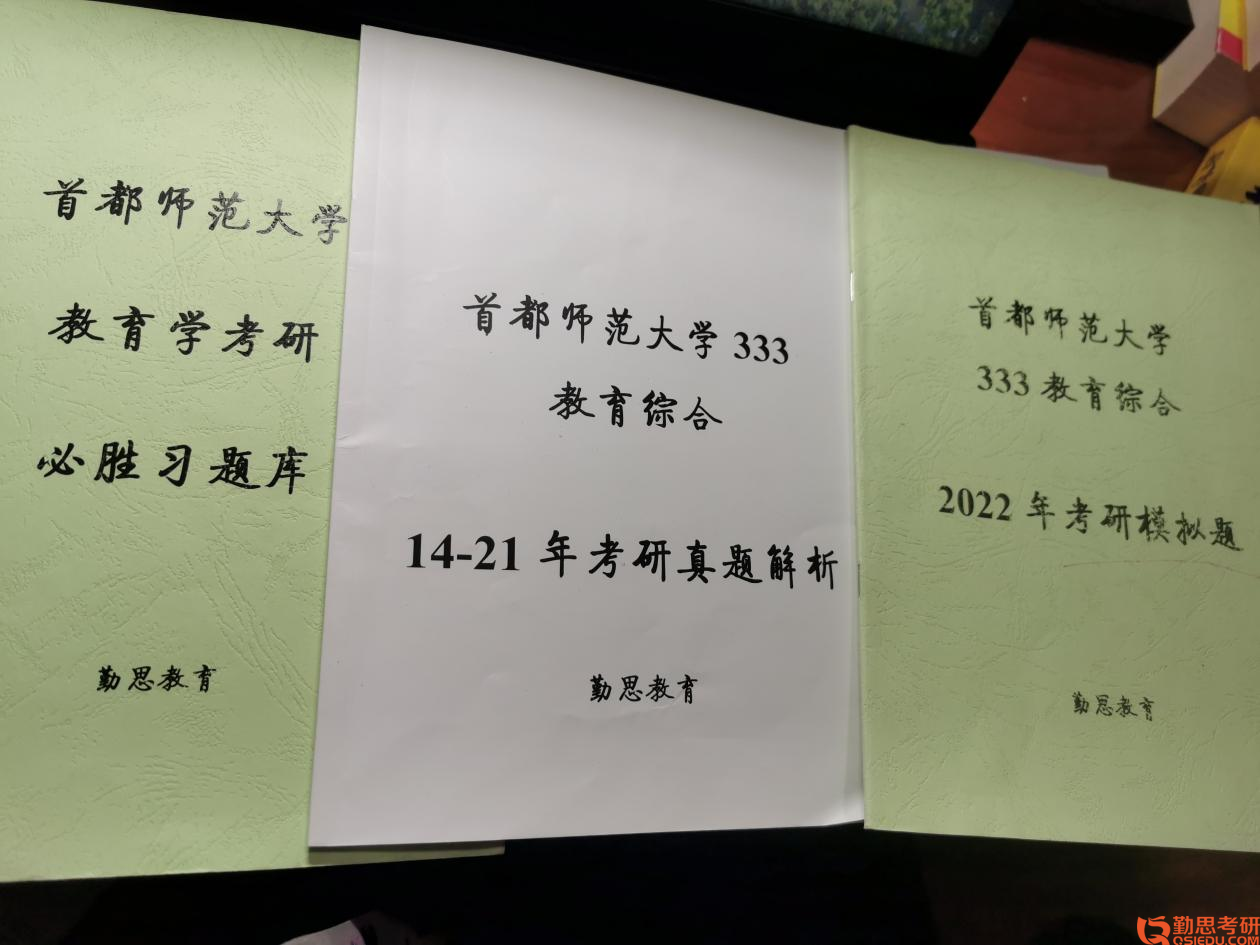 首都师范大学
教育学考研
必胜习题库
勤思教育
首都师范大学333
教育综合
14-21年考研真题解析
勤思教育
首都师范大学
333教育综合
2022年考研模拟题
勤思教育
勤思考研
QSIEDU.COM